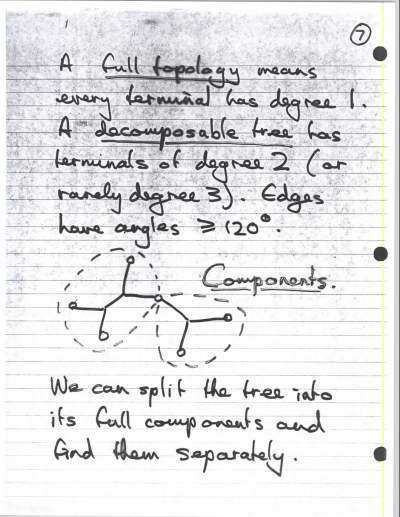 7
A full topology means
every terminal has degree 1.
A decomposable tree has
terminals of degree 2 (or
rarely degree 3). Edges
have angles ≥ 120°.
Components.
We can split the tree into
its full components and
find them separately.